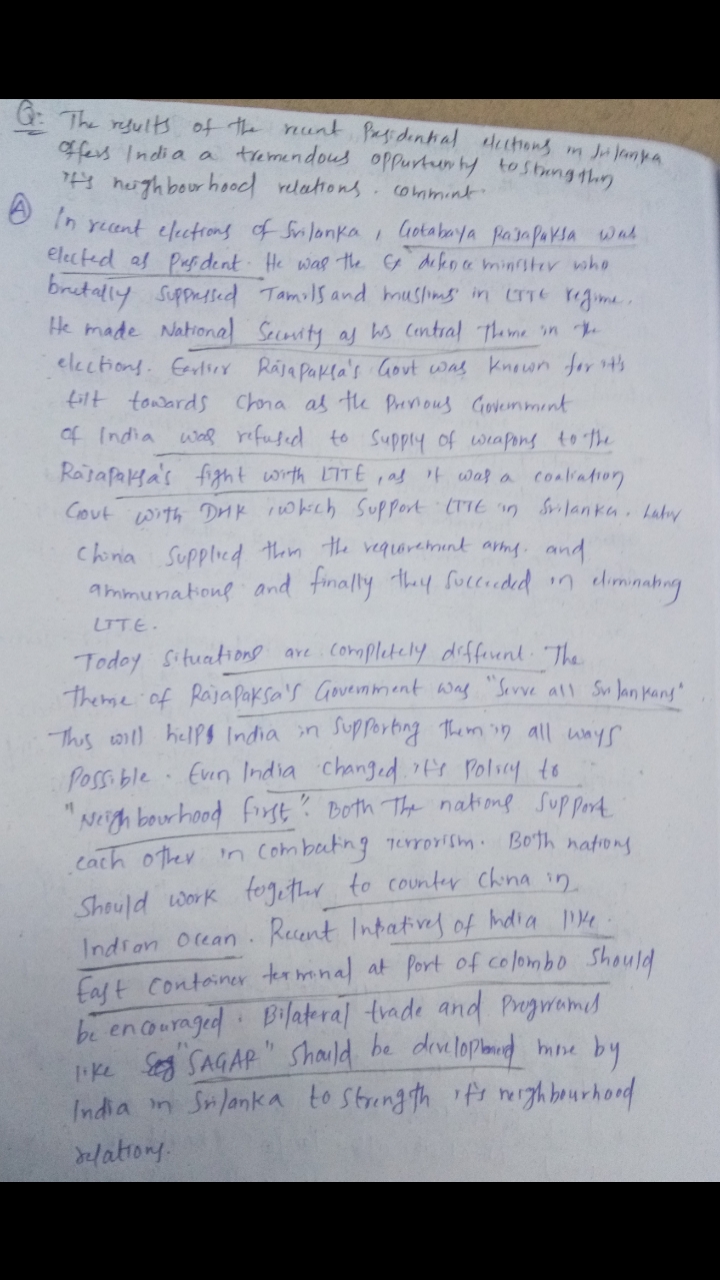 Q: The results of the recent Presidential elections in Srilanka
offers India a tremendous oppurtunity to strengthen
it's neighbourhood relations. comment.
A In recent elections of Srilanka, Gotabaya Rajapaksa was
elected as President. He was the Ex defence minister who
brutally suppressed Tamils and muslims in LTTE regime.
He made National Security as his central Theme in the
elections. Earlier Rajapaksa's Govt was known for it's
tilt towards China as the Previous Government
of India was refused to supply of weapons to the
Rajapaksa's fight with LTTE, as it was a coaliation
Govt with DMK, which support LTTE in Srilanka. Later
China supplied them the requirement arms. and
ammunations and finally they succeeded in eliminating
LTTE.
Today situations are completely different. The
theme of Rajapaksa's Government was "Serve all Srilankans"
This will helps India in supporting them in all ways
possible. Even India changed it's policy to
"Neighbourhood first". Both The nations support
each other in combating Terrorism. Both nations
should work together to counter China in
Indian Ocean. Recent Intiatives of India like
East container terminal at Port of colombo should
be encouraged. Bilateral trade and Programes
like "SAGAR" should be developed more by
India in Srilanka to strength it's neighbourhood
relations.